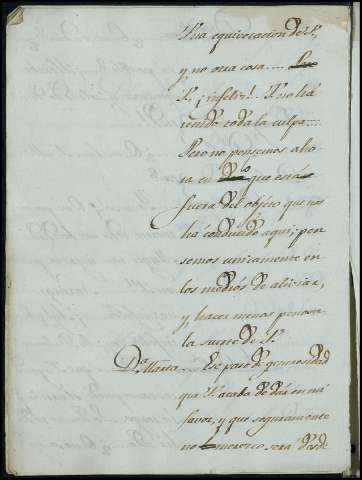 Fua equivocacion de V.,
y no otra cosa....
V. ¡infeliz!.. Yo soi ha
viendo toda la culpa....
Pero no pensemos aho=
ra en lo que está
fuera del objeto que nos
ha conducido aqui; pen
semos unicamente en
los medios de aliviar,
y, hacer menos penosa
la suerte de V.
D.a Maria.... Ese paso de generosidad
que V. acaba de dár en mi
favor, y que seguramente
no merezco será desde